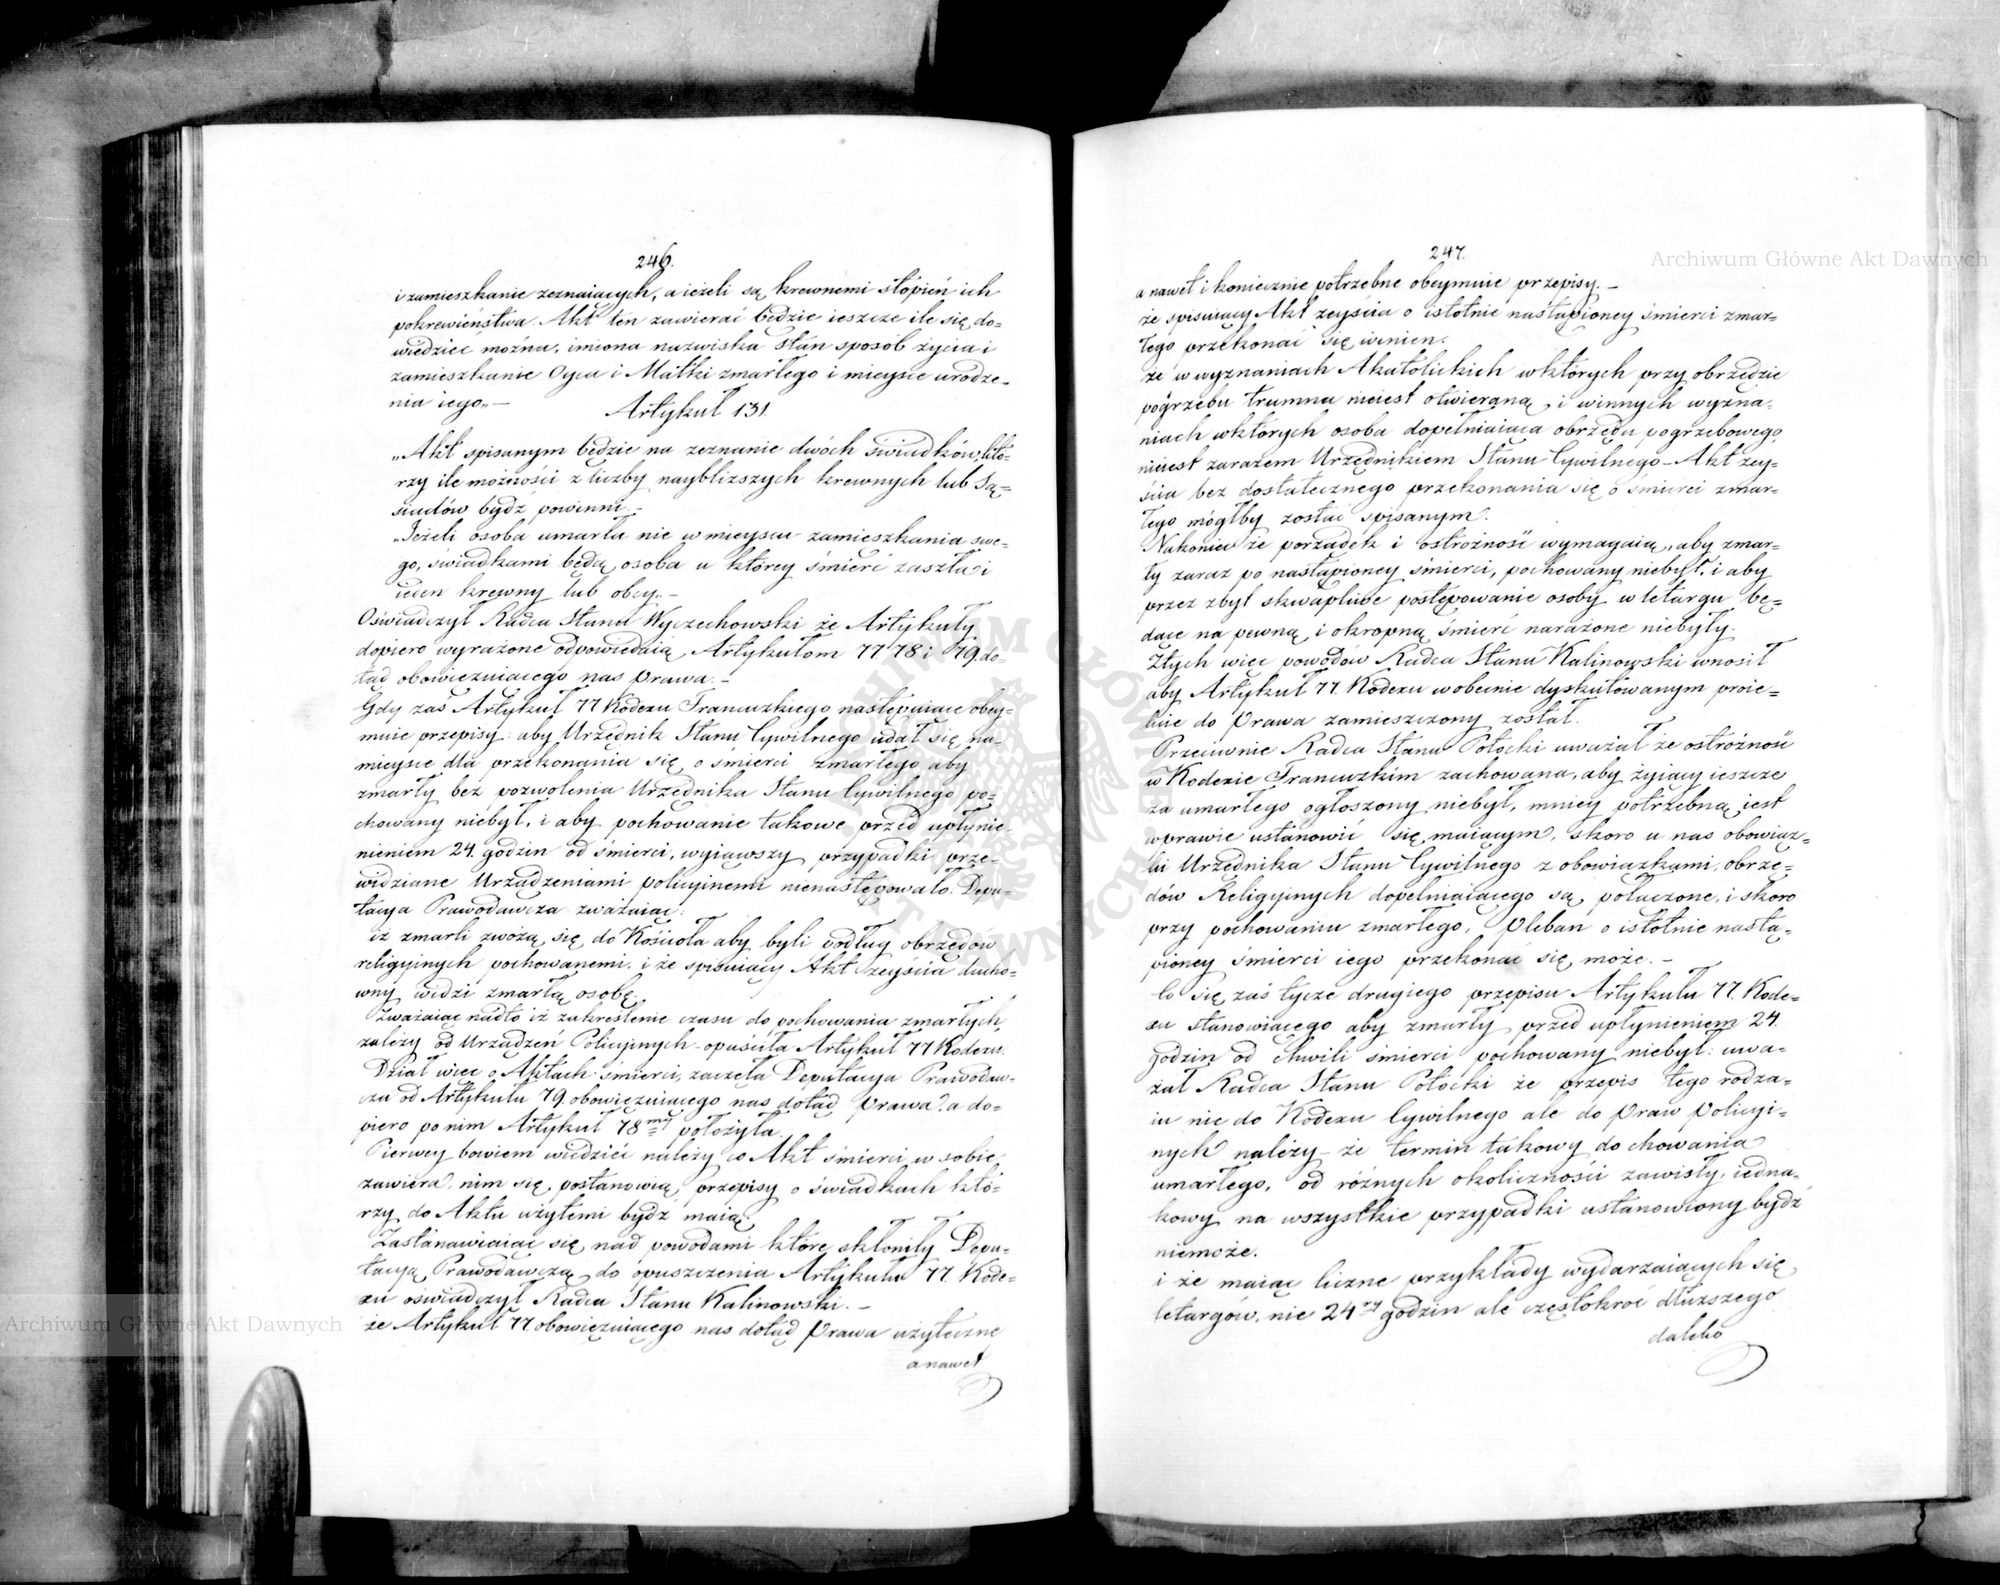 246.
i zamieszkanie zeznaiących, a ieżeli są krewnemi stopień ich
pokrewieństwa. Akt ten zawierać będzie ieszcze ile się do=
wiedzieć można, imiona nazwiska stan sposób życia i
zamieszkanie Oyca i Matki zmarłego i mieysce urodze=
nia iego„—
Artykuł 131.
„Akt spisanym będzie na zeznanie dwóch świadków, któ=
rzy ile możności z liczby naybliższych krewnych lub Są=
siadów bydź powinni.—
„Ieżeli osoba umarła nie w mieyscu zamieszkania swe=
go, świadkami będą, osoba u którey śmierć zaszła i
ieden krewny lub obcy„—
Oświadczył Radca Stanu Wyczechowski że Artykuły
dopiero wyrażone odpowiedaią Artykułom 77 78 i 79. do=
tąd obowięzuiącego nas Prawa.—
Gdy zaś Artykuł 77 Kodexu Francuzkiego następuiące obey=
muie przepisy: aby Urzędnik Stanu Cywilnego udał się na=
mieysce dla przekonania się o śmierci zmarłego aby
zmarły bez pozwolenia Urzędnika Stanu Cywilnego po=
chowany niebył, i aby pochowanie takowe przed upłynie=
nieniem 24. godzin od śmierci, wyiąwszy przypadki prze=
widziane Urządzeniami policyinemi nienastępowało. Depu=
tacya Prawodawcza zważaiąc:
iż zmarli zwożą się do Kościoła aby byli podług obrzędów
religyinych pochowanemi, i że spisuiący Akt Zeyścia ducho=
wny widzi zmarłą osobę.
Zważaiąc nadto iż zakreślenie czasu do pochowania zmarłych,
zależy od Urządzeń Policyinych – opuściła Artykuł 77 Kodexu.
Dział więc o Aktach śmierci, zaczęła Deputacya Prawodaw=
cza od Artykułu 79. obowięzuiącego nas dotąd Prawa, a do=
piero po nim Artykuł 78my położyła.
Pierwey bowiem wiedzieć należy co Akt śmierci w sobie
zawiera, nim się postanowią przepisy o świadkach któ=
rzy do Aktu użytemi bydź maią.
Zastanawiaiąc się nad powodami które skłoniły Depu=
tacyą Prawodawczą do opuszczenia Artykułu 77. Kode=
xu oświadczył Radca Stanu Kalinowski.—
że Artykuł 77. obowięzuiącego nas dotąd Prawa użyteczne
a nawet
247.
a nawet i koniecznie potrzebne obeymuie przepisy.—
że spisuiący Akt zeyścia o istotnie nastąpioney śmierci zmar=
łego przekonać się winien.
że w wyznaniach Akatolickich w których przy obrzędzie
pogrzebu trumna nieiest otwieraną, i w innych wyzna=
niach w których osoba dopełniaiąca obrzędu pogrzebowego,
nieiest zarazem Urzędnikiem Stanu Cywilnego – Akt zey=
ścia bez dostatecznego przekonania się o śmierci zmar=
łego mógłby zostać spisanym.
Nakoniec że porządek i ostrożność wymagaią, aby zmar=
ły zaraz po nastąpioney śmierci, pochowany niebył, i aby
przez zbyt skwapliwe postępowanie osoby w letargu bę=
dące na pewną i okropną śmierć narażone niebyły.
Z tych więc powodów Radca Stanu Kalinowski wnosił
aby Artykuł 77. Kodexu w obecnie dyskutowanym proie=
kcie do Prawa zamieszczony został.
Przeciwnie Radca Stanu Potocki uważał że ostrożność
w Kodexie Francuzkim zachowana, aby żyiący ieszcze
za umarłego ogłoszony niebył, mniey potrzebną iest
w prawie ustanowić się maiącym, skoro u nas obowiąz=
ki Urzędnika Stanu Cywilnego z obowiązkami obrzę=
dów Religyinych dopełniaiącego są połączone, i skoro
przy pochowaniu zmarłego, Pleban o istotnie nastą=
pioney śmierci iego przekonać się może.—
Co się zaś tycze drugiego przepisu Artykułu 77. Kode=
xu stanowiącego aby zmarły przed upłynieniem 24.
godzin od chwili śmierci pochowany niebył: uwa=
żał Radca Stanu Potocki że przepis tego rodza=
iu nie do Kodexu Cywilnego ale do Praw policyi=
nych należy – że termin takowy do chowania
umarłego, od różnych okoliczności zawisły, iedna=
kowy na wszystkie przypadki ustanowiony bydź
niemoże.
i że maiąc liczne przykłady wydarzaiących się
letargów, nie 24ry godzin ale częstokroć dłuższego
daleko
Archiwum Główne Akt Dawnych
Archiwum Główne Akt Dawnych
ARCHIWUM GŁÓWNE AKT DAWNYCH